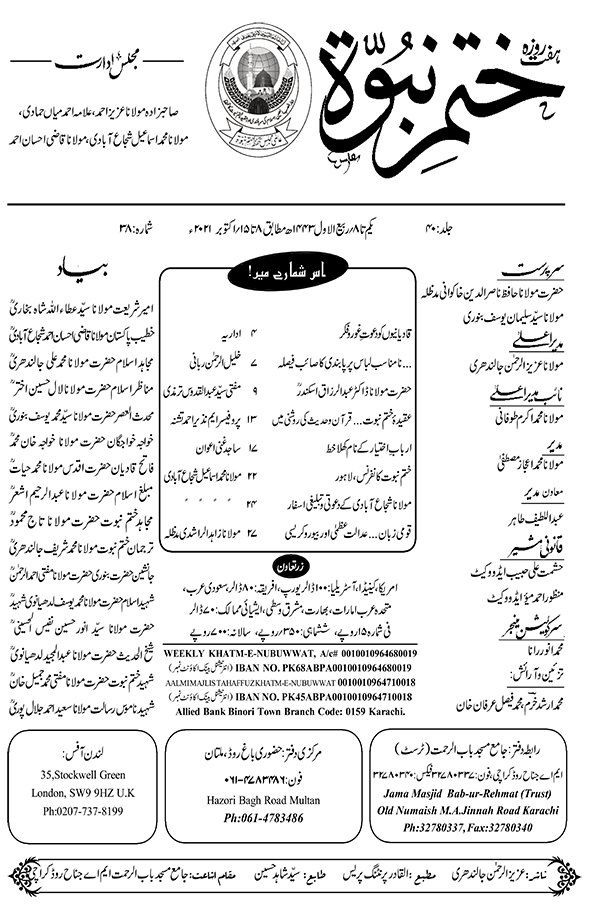 ہفت روزہ
ختم نبوۃ
مجلس ادارت
صاحبزادہ مولانا عزیز احمد، علامہ احمد میاں حمادی،
مولانا محمد اسماعیل شجاع آبادی، مولانا قاضی احسان احمد
جلد: ۴۰ یکم تا ۸/ ربیع الاول ۱۴۴۳ھ مطابق ۸ تا ۱۵/ اکتوبر ۲۰۲۱ء شمارہ: ۳۸
سرپرست
حضرت مولانا حافظ ناصر الدین خاکوانی مدظلہ
مولانا سیّد سلیمان یوسف بنوری
مدیر اعلیٰ
مولانا عزیز الرحمٰن جالندھری
نائب مدیر اعلیٰ
مولانا محمد اکرم طوفانی
مدیر
مولانا محمد اعجاز مصطفیٰ
معاون مدیر
عبداللطیف طاہر
قانونی مشیر
حشمت علی حبیب ایڈووکیٹ
منظور احمد میؤ ایڈووکیٹ
سرکولیشن منیجر
محمد انور رانا
تزئین و آرائش:
محمد ارشد خرم، محمد فیصل عرفان خان
اس شمارے میں!
قادیانیوں کو دعوتِ غور و فکر ۴ اداریہ
...نامناسب لباس پر پابندی کا صائب فیصلہ ۷ خلیل الرحمٰن ربانی
حضرت مولانا ڈاکٹر عبدالرزاق اسکندرؒ ۹ مفتی سیّد عبدالقدوس ترمذی
عقیدۂ ختم نبوت... قرآن و حدیث کی روشنی میں ۱۳ پروفیسر ایم نذیر احمد تشنہ
ارباب اختیار کے نام کھلا خط ۱۷ ساجد غنی اعوان
ختم نبوت کانفرنس، لاہور ۲۲ مولانا محمد اسماعیل شجاع آبادی
مولانا شجاع آبادی کے دعوتی و تبلیغی اسفار ۲۴ " " " "
قومی زبان... عدالت عظمٰی اور بیوروکریسی ۲۷ مولانا زاہد الراشدی مدظلہ
زر تعاون
امریکا، کینیڈا، آسٹریلیا: ۱۰۰ ڈالر یورپ، افریقہ: ۸۰ ڈالر، سعودی عرب،
متحدہ عرب امارات، بھارت، مشرق وسطی، ایشیائی ممالک: ۷۰ ڈالر
فی شمارہ ۱۵ روپے، ششماہی: ۳۵۰ روپے، سالانہ: ۷۰۰ روپے
WEEKLY KHATM-E-NUBUWWAT, A/c# 0010010964680019
IBAN NO. PK68ABPA0010010964680019 (انٹرنیشنل بینک اکاؤنٹ نمبر)
AALMIMAJLISTAHAFFUZKHATM-E-NUBUWWAT 0010010964710018
IBAN NO. PK45ABPA0010010964710018 (انٹرنیشنل بینک اکاؤنٹ نمبر)
Allied Bank Binori Town Branch Code: 0159 Karachi.
بیاد
امیر شریعت مولانا سیّد عطاء اللہ شاہ بخاریؒ
خطیب پاکستان مولانا قاضی احسان احمد شجاع آبادیؒ
مجاہد اسلام حضرت مولانا محمد علی جالندھریؒ
مناظر اسلام حضرت مولانا لال حسین اخترؒ
محدث العصر حضرت مولانا سیّد محمد یوسف بنوریؒ
خواجہ خواجگان حضرت مولانا خواجہ خان محمدؒ
فاتح قادیان حضرت اقدس مولانا محمد حیاتؒ
مبلغ اسلام حضرت مولانا عبدالرحیم اشعرؒ
مجاہد ختم نبوت حضرت مولانا تاج محمودؒ
ترجمان ختم نبوت حضرت مولانا محمد شریف جالندھریؒ
جانشین حضرت بنوری حضرت مولانا مفتی احمد الرحمٰنؒ
شہید اسلام حضرت مولانا محمد یوسف لدھیانوی شہیدؒ
حضرت مولانا سیّد انور حسین نفیس الحسینیؒ
شیخ الحدیث حضرت مولانا عبدالمجید لدھیانویؒ
شہید ختم نبوت حضرت مولانا مفتی محمد جمیل خانؒ
شہید ناموس رسالت مولانا سعید احمد جلال پوریؒ
رابطہ دفتر: جامع مسجد باب الرحمت (ٹرسٹ)
ایم اے جناح روڈ کراچی، فون: ۳۲۷۸۰۳۳۷ فیکس: ۳۲۷۸۰۳۴۰
Jama Masjid Bab-ur-Rehmat (Trust)
Old Numaish M.A.Jinnah Road Karachi
Ph:32780337, Fax:32780340
مرکزی دفتر: حضوری باغ روڈ، ملتان
فون: ۰۶۱-۴۷۸۳۴۸۶
Hazori Bagh Road Multan
Ph:061-4783486
لندن آفس:
35,Stockwell Green
London, SW9 9HZ U.K
Ph:0207-737-8199
ناشر: عزیز الرحمٰن جالندھری مطبع: القادر پرنٹنگ پریس طابع: سیّد شاہد حسین مقام اشاعت: جامع مسجد باب الرحمت ایم اے جناح روڈ کراچی